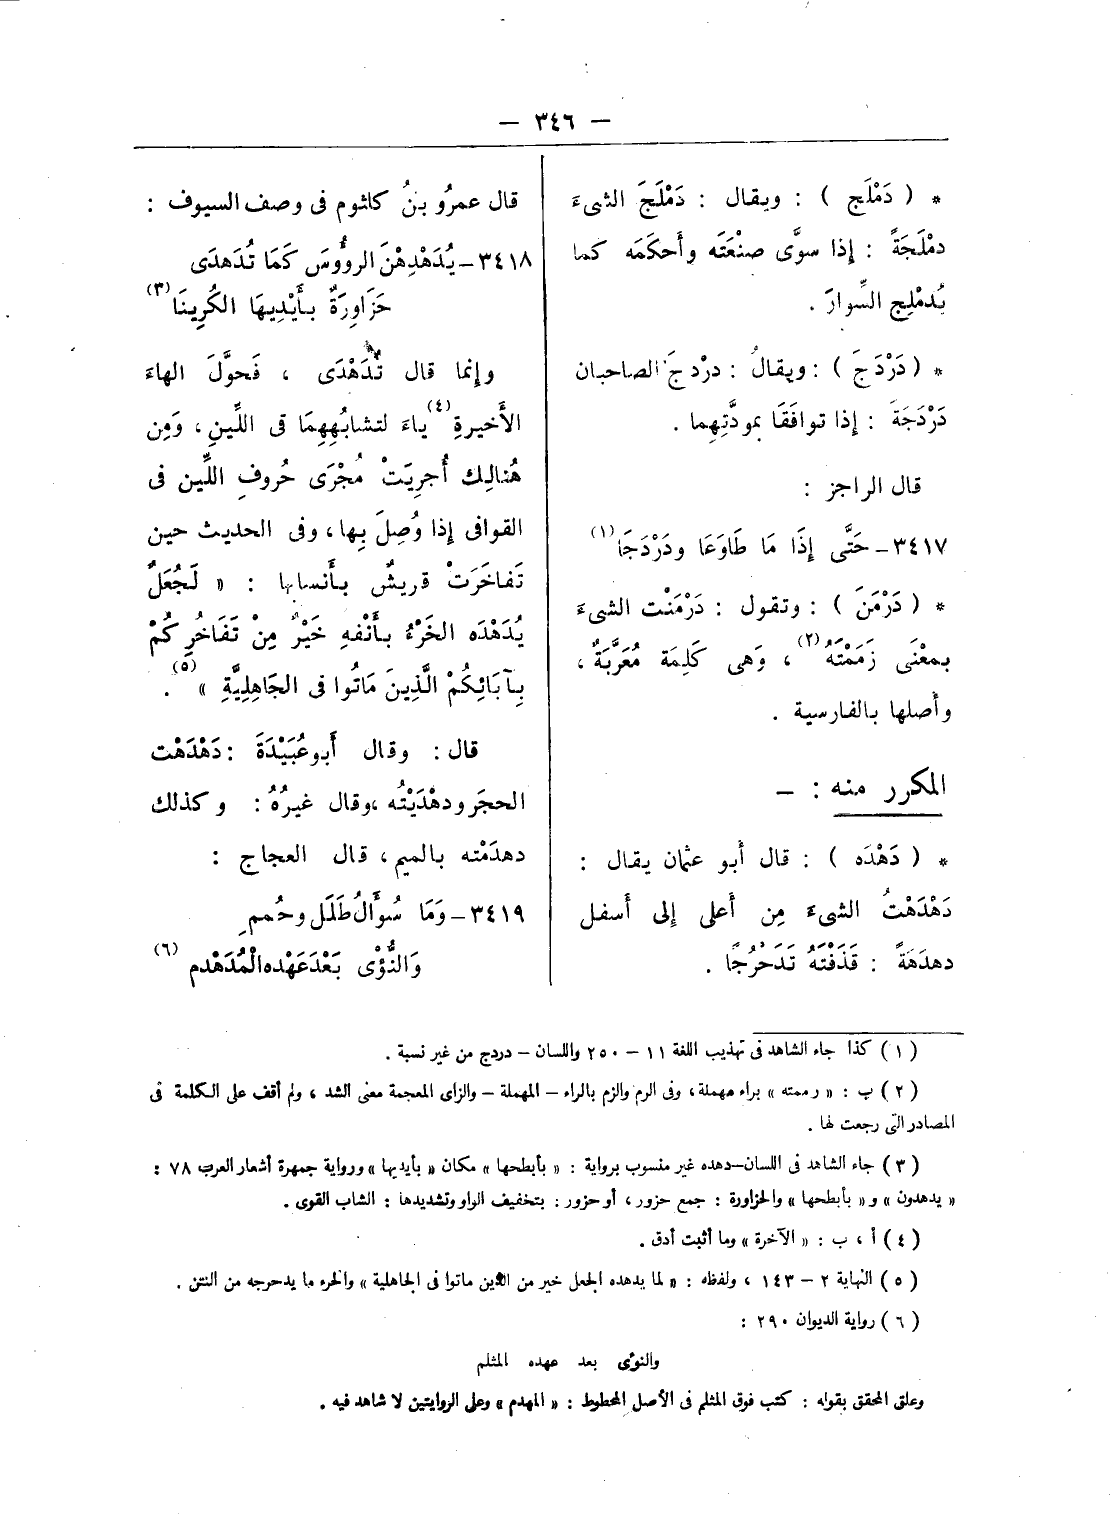 — ٣٤٦ —
* ( دَمْلَج ) : ويقال : دَمْلَجَ الشىءَ
دمْلَجَةً : إذا سوَّى صنْعَتَه وأحكَمَه كما
يُدمْلِج السِّوارَ .
* ( دَرْدَجَ ) : ويقالُ : دردجَ الصاحبان
دَرْدَجَةً : إذا توافَقَا بمودَّتِهِما .
قال الراجز :
٣٤١٧ – حَتَّى إذَا مَا طَاوَعَا ودَرْدَجَا (١)
* ( دَرْمَنَ ) : وتقول : دَرْمَنْت الشىءَ
بمعْنَى زَمَمْتَهُ (٢) ، وَهى كَلِمَة مُعَرَّبَةٌ ،
وأصلها بالفارسية .
المكرر منه : –
* ( دَهْدَه ) : قال أبو عثمان يقال :
دَهْدَهْتُ الشىءَ مِن أَعلى إلى أسفل
دهدَهَةً : قَذَفْتَهُ تَدَحْرُجًا .
قال عمرُو بنُ كلثوم فى وصف السيوف :
٣٤١٨ – يُدَهْدِهْنَ الرؤُوسَ كَمَا تُدَهدَى
حَزَاوِرَةٌ بأَيْدِيهَا الكُرِينَا (٣)
وإنما قال تُدَهْدَى ، فَحوَّلَ الهاءَ
الأَخيرةِ (٤) ياءَ لتشابُهِهِمَا فى اللِّينِ ، وَمِن
هُنالِك أُجرِيَتْ مُجْرَى حُروفِ اللِّين فى
القوافى إذا وُصِلَ بِها ، وفى الحديث حين
تَفاخَرَتْ قريشٌ بأنسابها : « لَجُعَلٌ
يُدَهْدَه الخَرْءُ بأَنْفهِ خَيْرٌ مِنْ تَفَاخُرِكُمْ
بِآبَائِكُمْ الَّذِينَ مَاتُوا فى الجَاهِلِيَّةِ » (٥) .
قال : وقال أبو عُبَيْدَةَ : دَهْدَهْت
الحجَر ودهْدَيْتُه ، وقال غيرُهُ : وكذلك
دهدَمْته بالميم ، قال العجاج :
٣٤١٩ – وَمَا سُوَّالُ طَلَل وحُممِ
وَالنُّؤْى بَعْدَ عَهْده المُدَهْدم (٦)
( ١ ) كذا جاء الشاهد فى تهذيب اللغة ١١ – ٢٥٠ واللسان – دردج من غير نسبة .
( ٢ ) ب : « رممته » براء مهملة ، وفى الرم والزم بالراء – المهملة – والزاى المعجمة معنى الشد ، ولم أقف على الكلمة فى
المصادر التى رجعت لها .
( ٣ ) جاء الشاهد فى اللسان–دهده غير منسوب برواية : « بأبطحها » مكان « بأيديها » ورواية جمهرة أشعار العرب ٧٨ :
« يدهدون » و « بأبطحها » والحزاورة : جمع حزور ، أو حزور : بتخفيف الواو وتشديدها : الشاب القوى .
( ٤ ) أ ، ب : « الآخرة » وما أثبت أدق .
( ٥ ) النهاية ٢ – ١٤٣ ، ولفظه : « لما يدهده الجعل خير من الذين ماتوا فى الجاهلية » والخرء ما يدحرجه من النتن .
( ٦ ) رواية الديوان ٢٩٠ :
والنؤى بعد عهده المثلم
وعلق المحقق بقوله : كتب فوق المثلم فى الأصل المخطوط : « المهدم » وعلى الروايتين لا شاهد فيه .